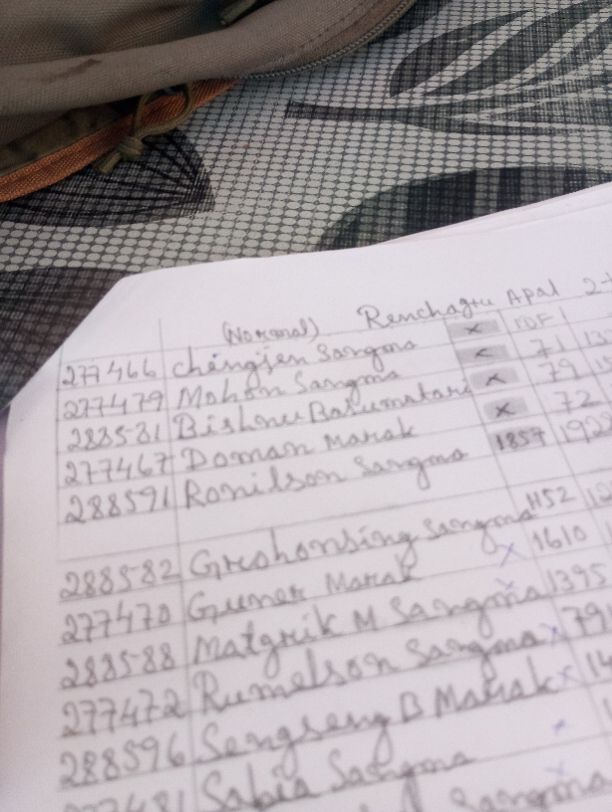 (Normal) Renchagru Apal 2-
277466 Chengjen Sangma × TDF1
277479 Mohon Sangma × 71
283531 Bishnu Basumatari × 79
277467 Doman Marak × 72
288591 Ronilson Sangma 1857 192
288582 Greshonsing Sangma 1152
277470 Guner Marak × 1610
288588 Matgrik M Sangma × 1395
277472 Rumelson Sangma × 791
288596 Sengseng B Marak × 14
Sabia Sangma ×
Sangma